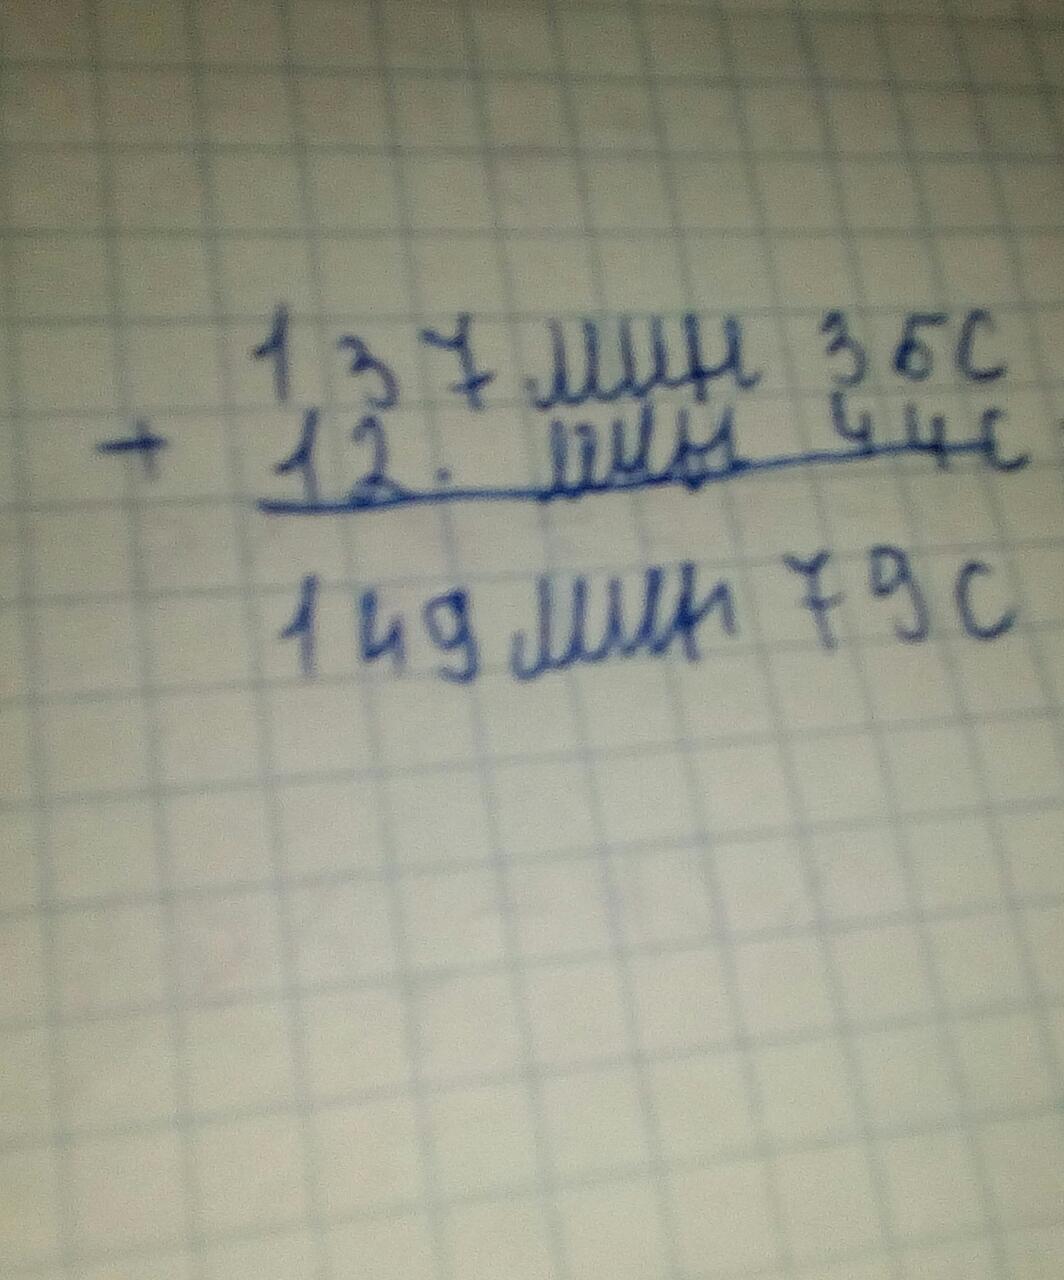 137 мин 35с
+ 12. мин 44с
149 мин 79 с